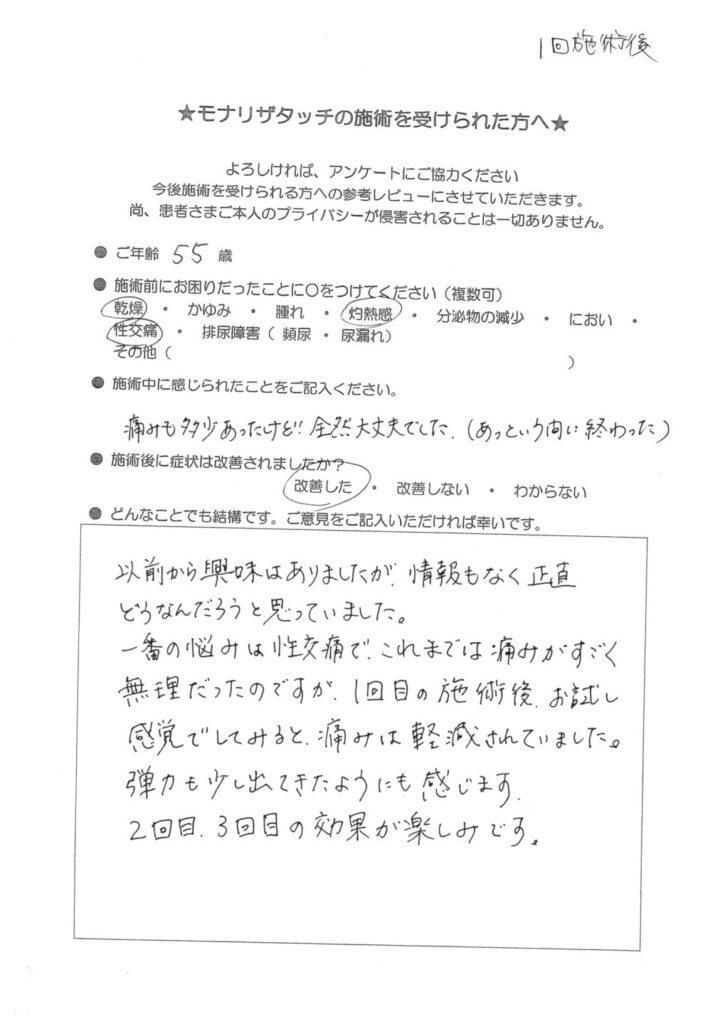 1回施術後
★モナリザタッチの施術を受けられた方へ★
よろしければ、アンケートにご協力ください
今後施術を受けられる方への参考レビューにさせていただきます。
尚、患者さまご本人のプライバシーが侵害されることは一切ありません。
● ご年齢 55 歳
● 施術前にお困りだったことに○をつけてください（複数可）
乾燥 ・ かゆみ ・ 腫れ ・ 灼熱感 ・ 分泌物の減少 ・ におい ・
性交痛 ・ 排尿障害（ 頻尿 ・ 尿漏れ）
その他（ ）
● 施術中に感じられたことをご記入ください。
痛みも多少あったけど!! 全然大丈夫でした.（あっという間に終わった）
● 施術後に症状は改善されましたか？
改善した ・ 改善しない ・ わからない
● どんなことでも結構です。ご意見をご記入いただければ幸いです。
以前から興味はありましたが、情報もなく正直
どうなんだろうと思っていました。
一番の悩みは性交痛で、これまでは痛みがすごく
無理だったのですが、1回目の施術後、お試し
感覚でしてみると、痛みは軽減されていました。
弾力も少し出てきたようにも感じます.
2回目、3回目の効果が楽しみです。